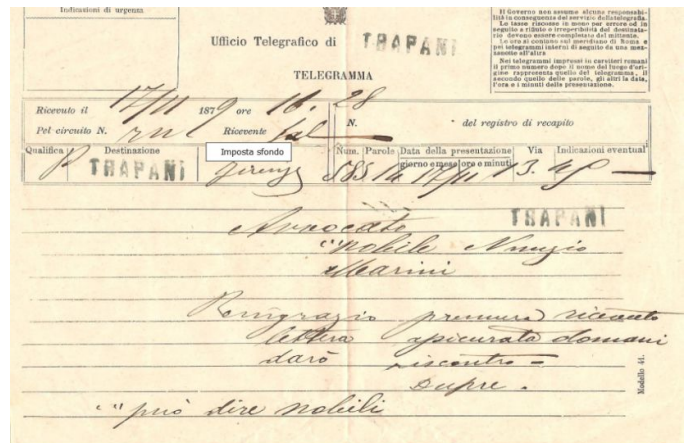 Indicazioni di urgenza
Ufficio Telegrafico di TRAPANI
TELEGRAMMA
Il Governo non assume alcune responsabi-
lità in conseguenza del servizio della telegrafia.
Le tasse riscosse in meno per errore od in
seguito a rifiuto o irreperibilità del destinata-
rio devono essere completate dal mittente.
Le ore si contano sul meridiano di Roma e
pei telegrammi interni di seguito da una mez-
zanotte all'altra
Nei telegrammi impressi in caratteri romani
il primo numero dopo il nome del luogo d'ori-
gine rappresenta quello del telegramma, il
secondo quello delle parole, gli altri la data,
l'ora e i minuti della presentazione.
Ricevuto il 17/11 1879 ore 16. 28
Pel circuito N. Ricevente
N. del registro di recapito
Qualifica Destinazione Num. Parole Data della presentazione Via Indicazioni eventual
giorno e mese ore e minuti
P TRAPANI Imposta sfondo Firenze 585 14 17/11 13.
TRAPANI
Avvocato
"nobile Nunzio
Marini
Ringrazio premura ricevuto
lettera domani
darò riscontro =
Dupre.
"" può dire nobili
Modello 41.